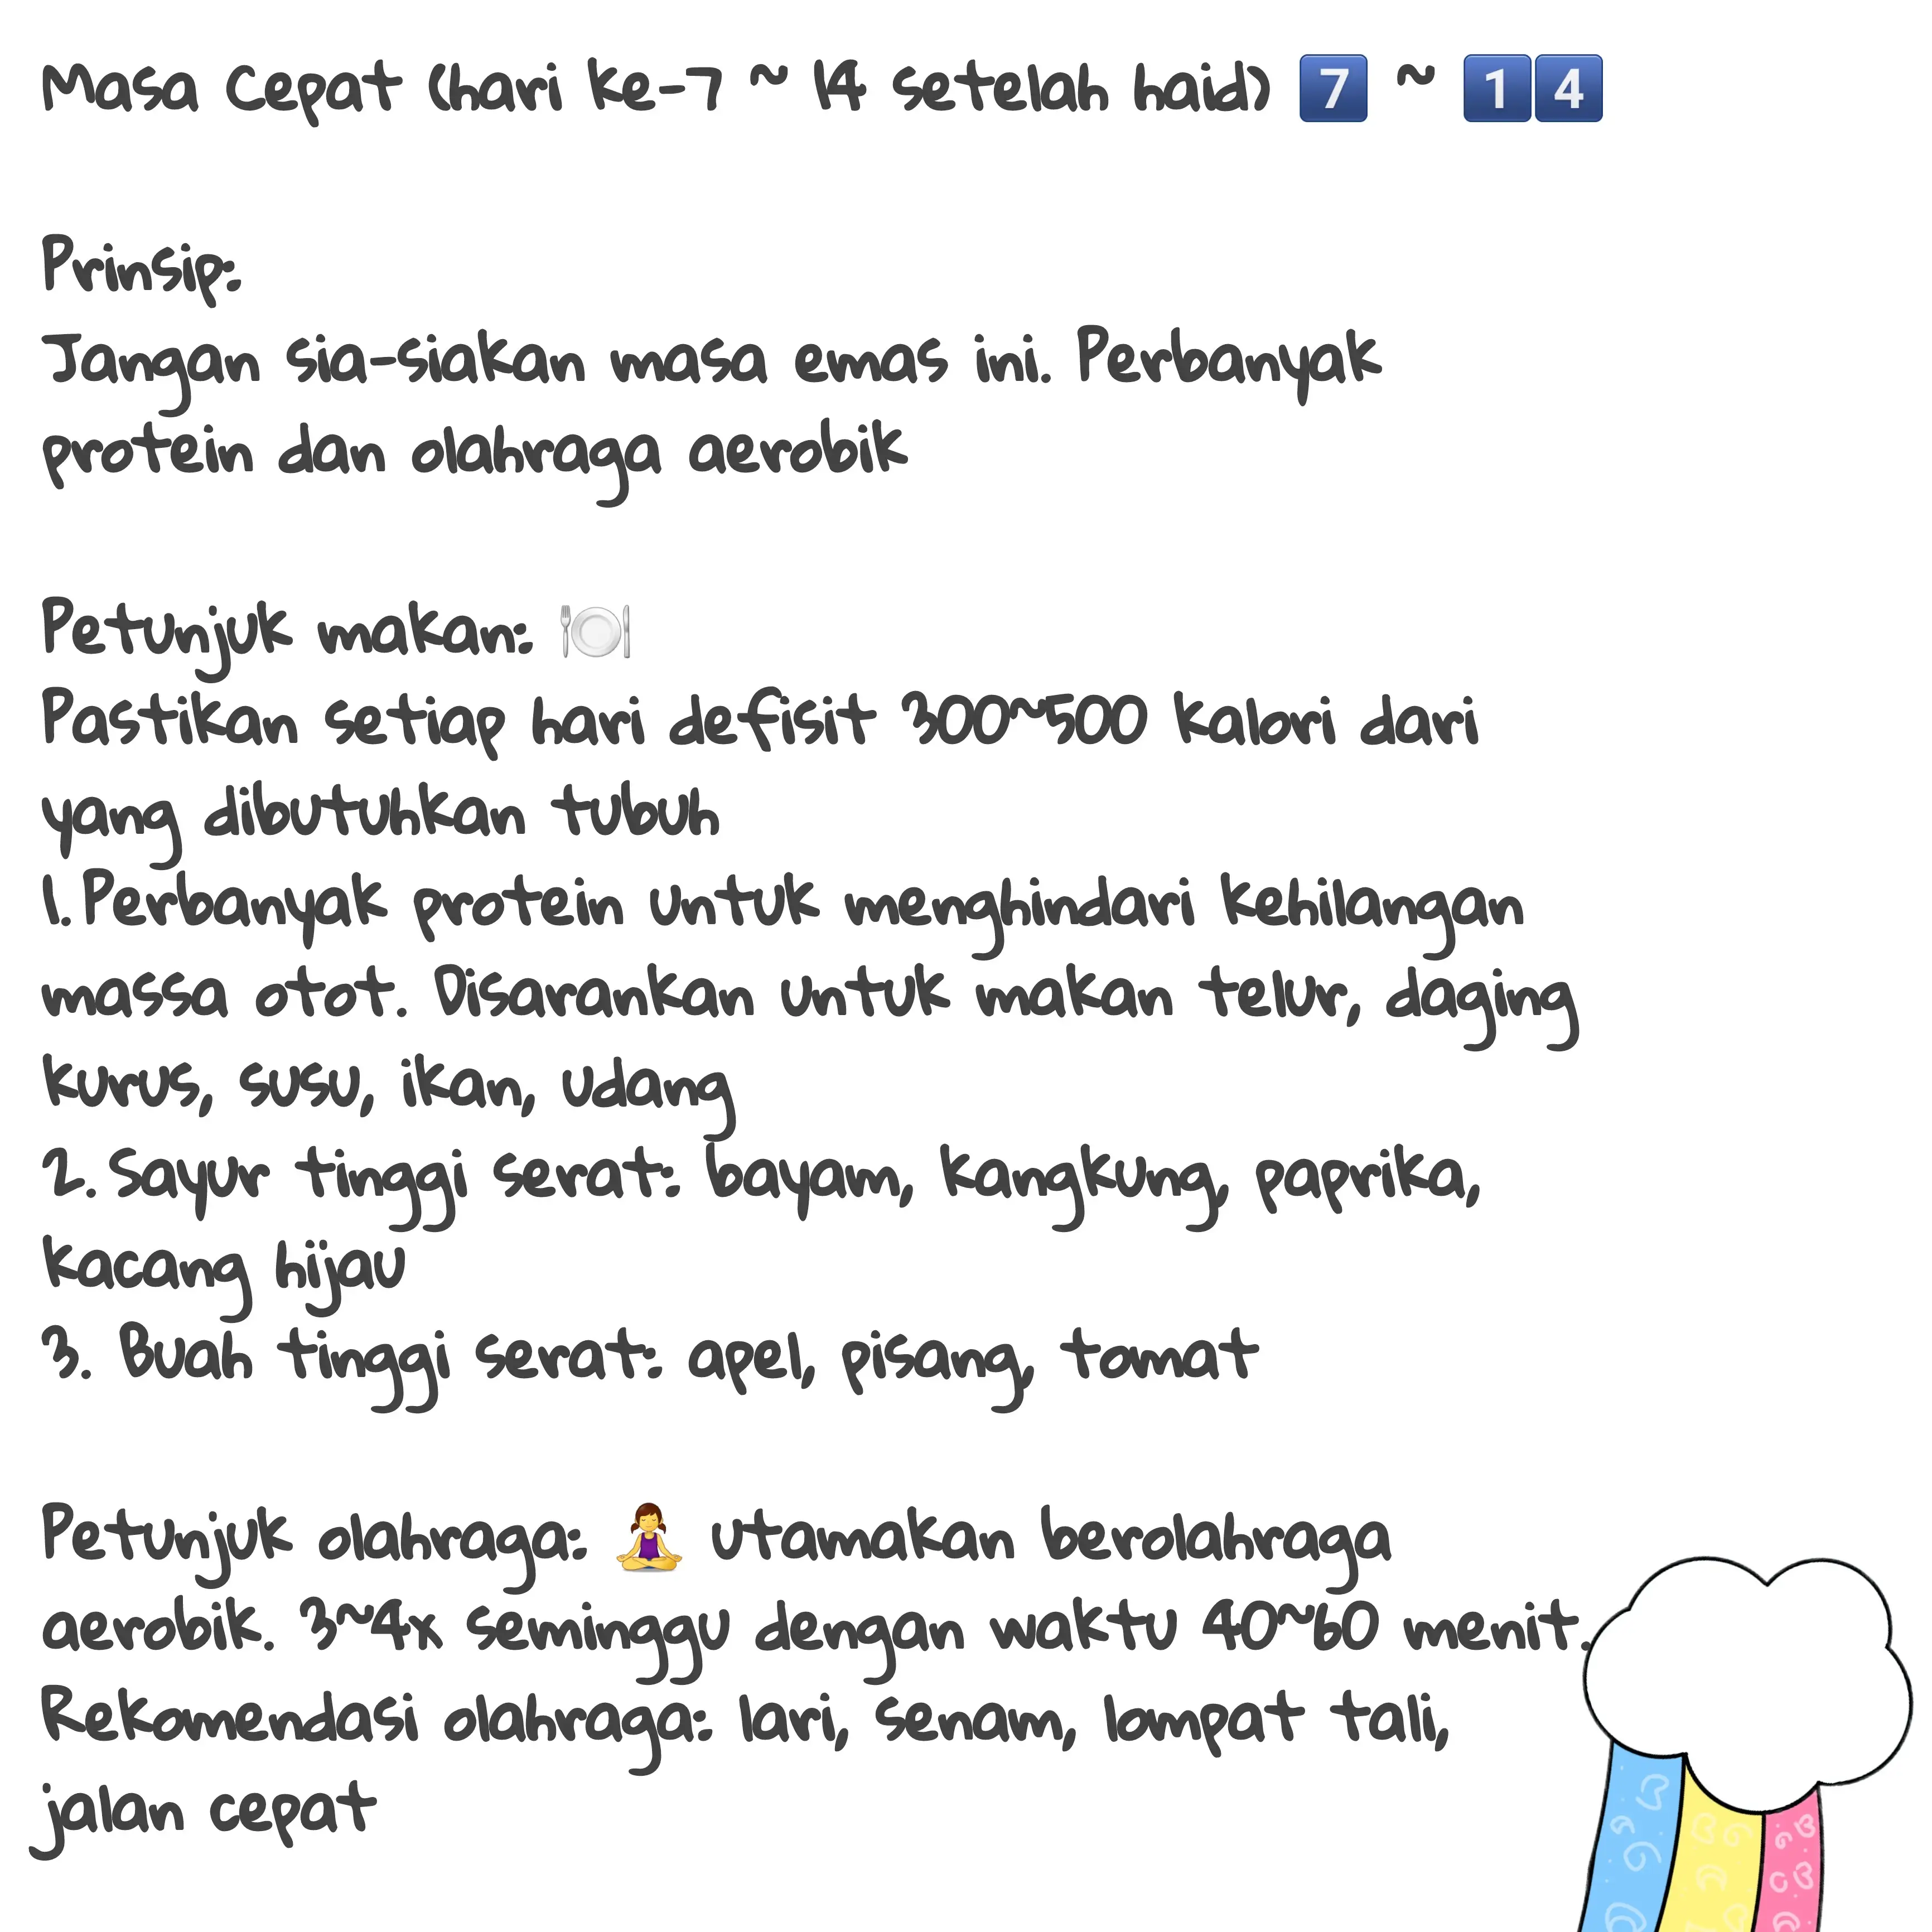 Masa Cepat (hari ke-7 ~ 14 setelah haid) 7️⃣ ~ 1️⃣4️⃣
Prinsip:
Jangan sia-siakan masa emas ini. Perbanyak
protein dan olahraga aerobik
Petunjuk makan: 🍽️
Pastikan setiap hari defisit 300~500 kalori dari
yang dibutuhkan tubuh
1. Perbanyak protein untuk menghindari kehilangan
massa otot. Disarankan untuk makan telur, daging
kurus, susu, ikan, udang
2. Sayur tinggi serat: bayam, kangkung, paprika,
kacang hijau
3. Buah tinggi serat: apel, pisang, tomat
Petunjuk olahraga: 🧘‍♀️ utamakan berolahraga
aerobik. 3~4x seminggu dengan waktu 40~60 menit.
Rekomendasi olahraga: lari, senam, lompat tali,
jalan cepat